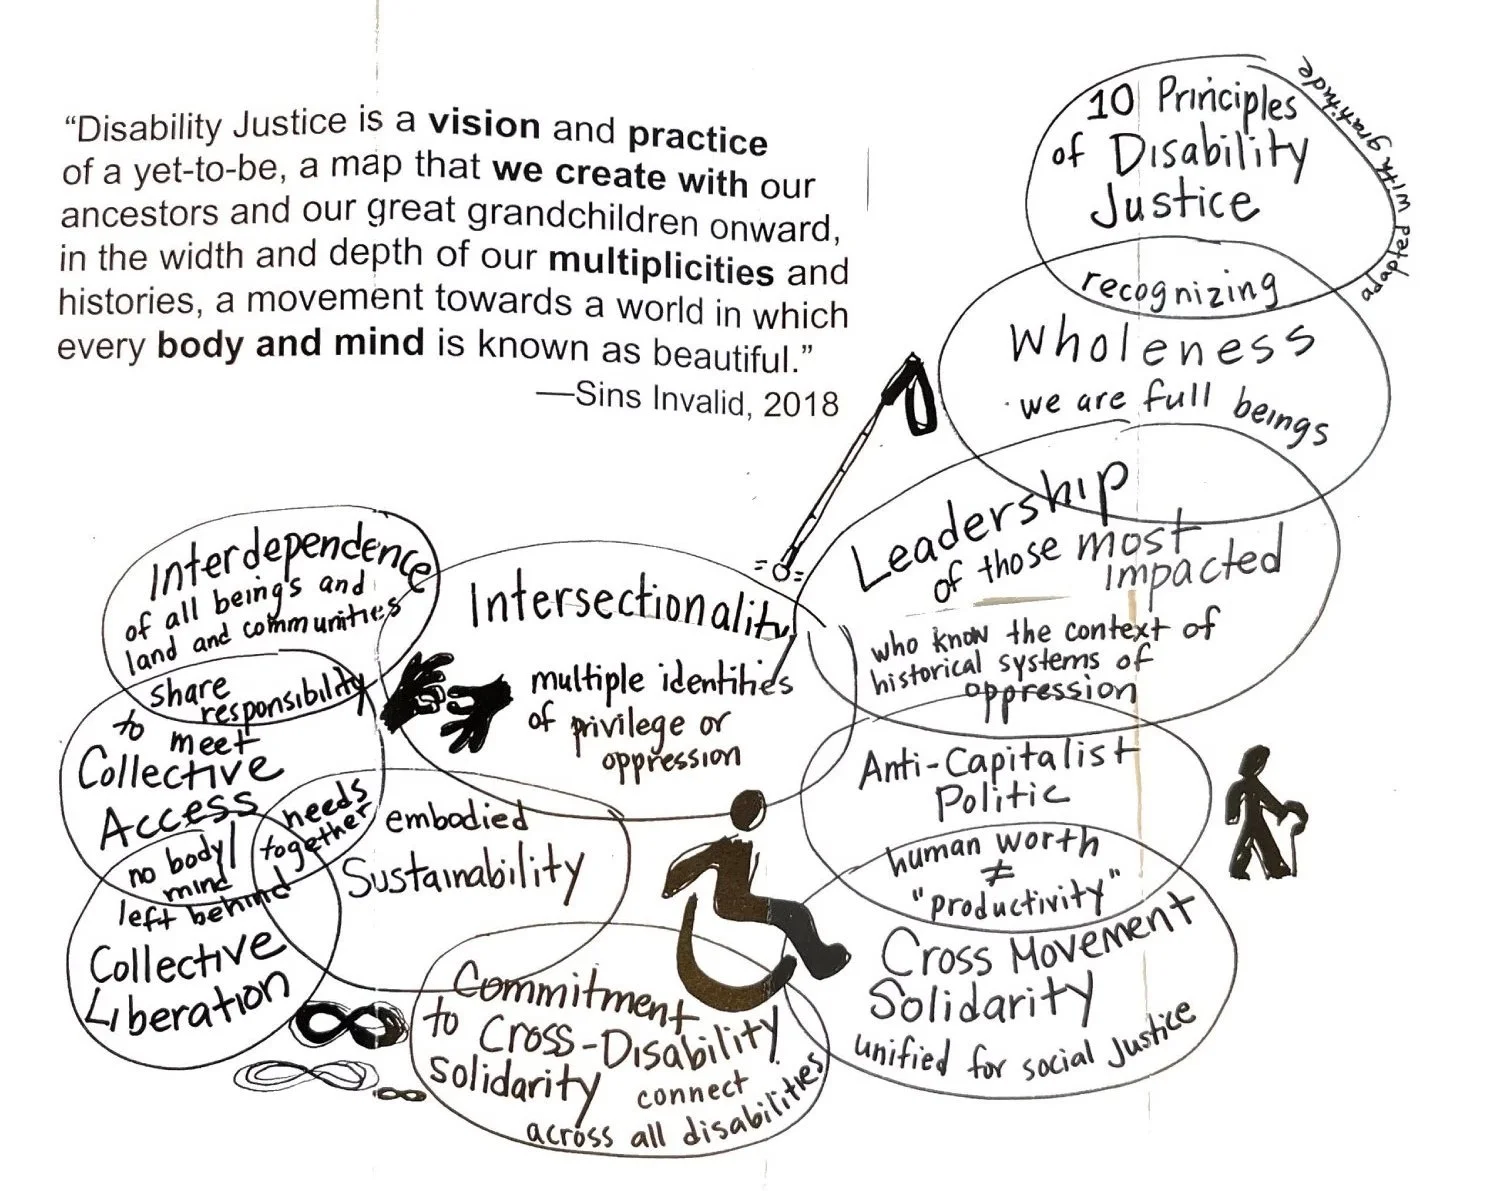 “Disability Justice is a vision and practice
of a yet-to-be, a map that we create with our
ancestors and our great grandchildren onward,
in the width and depth of our multiplicities and
histories, a movement towards a world in which
every body and mind is known as beautiful.”
—Sins Invalid, 2018
10 Principles
of Disability
Justice
adapted with gratitude
recognizing
Wholeness
we are full beings
Leadership
of those most
impacted
who know the context of
historical systems of
oppression
Anti-Capitalist
Politic
human worth
≠
"productivity"
Cross Movement
Solidarity
unified for social justice
Intersectionality
multiple identities
of privilege or
oppression
Interdependence
of all beings and
land and communities
share
responsibility
to meet
Collective
Access
needs
together
embodied
Sustainability
no body/
mind
left behind
Collective
Liberation
Commitment
to Cross-Disability
Solidarity
connect
across all disabilities